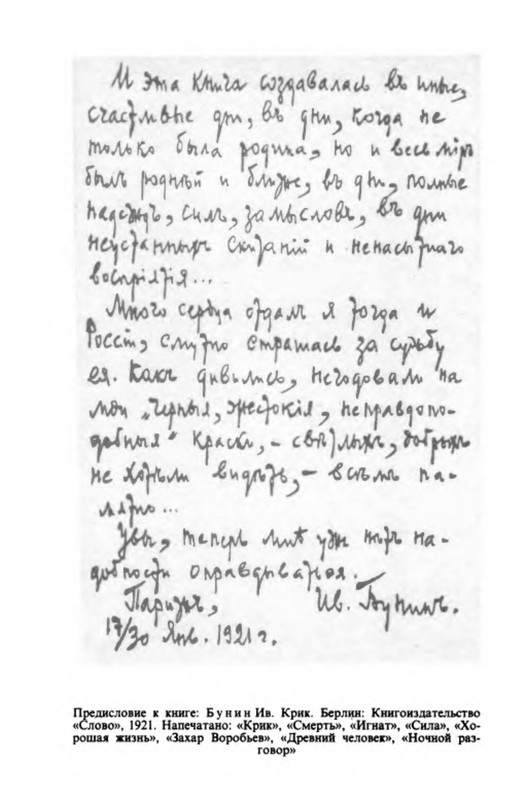 И эта книга создавалась въ иные,
счастливые дни, въ дни, когда не
только была родина, но и весь мiръ
былъ роднѣй и ближе, въ дни, полные
надеждъ, силъ, замысловъ, въ дни
неустанныхъ скитанiй и ненасытнаго
воспрiятiя...
Много сердца отдалъ я тогда и
Россiи, смутно страшась за судьбу
ея. Какъ дивились, негодовали на
мои „черныя, жестокiя, неправдопо-
добныя" краски, – свѣтлыхъ, добрыхъ
не хотѣли видѣть, – всѣмъ па-
мятно...
Увы, теперь мнѣ уже нѣтъ на-
добности оправдываться.
Парижъ, Ив. Бунинъ.
17/30 Янв. 1921 г.
Предисловие к книге: Бунин Ив. Крик. Берлин: Книгоиздательство
«Слово», 1921. Напечатано: «Крик», «Смерть», «Игнат», «Сила», «Хо-
рошая жизнь», «Захар Воробьев», «Древний человек», «Ночной раз-
говор»